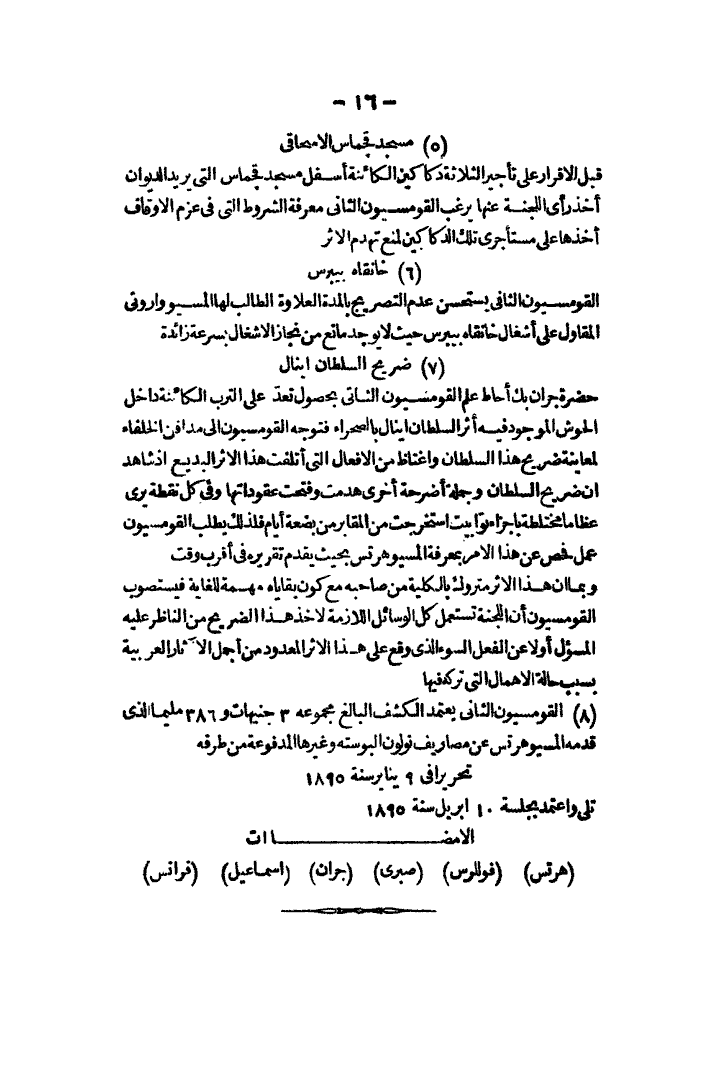 - ١٦ -
(٥) مسجد قجماس الاسحاقى
قبل الاقرار على تأجير الثلاثة دكاكين الكائنة أسفل مسجد قجماس التى يريد الديوان
أخذ رأى اللجنة عنها يرغب القومسيون الثانى معرفة الشروط التى فى عزم الاوقاف
أخذها على مستأجرى تلك الدكاكين لمنع تهدم الاثر
(٦) خانقاه بيبرس
القومسيون الثانى يستحسن عدم التصريح بالمدة العلاوة الطالب لها المسيو واروتى
المقاول على أشغال خانقاه بيبرس حيث لا يوجد مانع من نجاز الاشغال بسرعة زائدة
(٧) ضريح السلطان اينال
حضرة جران بك أحاط علم القومسيون الثانى بحصول تعد على الترب الكائنة داخل
الحوش الموجود فيه أثر السلطان اينال بالصحراء فتوجه القومسيون الى مدافن الخلفاء
لمعاينة ضريح هذا السلطان واغتاظ من الافعال التى أتلفت هذا الاثر البديع اذ شاهد
ان ضريح السلطان وجملة أضرحة أخرى هدمت وفتحت عقوداتها وفى كل نقطة يرى
عظاما مختلطة باجزاء توابيت استخرجت من المقابر من بضعة أيام فلذلك يطلب القومسيون
عمل فحص عن هذا الامر بمعرفة المسيو هرتس بحيث يقدم تقريره فى أقرب وقت
وبما ان هذا الاثر متروك بالكلية من صاحبه مع كون بقاياه مهمة للغاية فيستصوب
القومسيون أن اللجنة تستعمل كل الوسائل اللازمة لاخذ هذا الضريح من الناظر عليه
المسؤل أولا عن الفعل السوء الذى وقع على هذا الاثر المعدود من أجمل الآثار العربية
بسبب حالة الاهمال التى تركه فيها
(٨) القومسيون الثانى يعتمد الكشف البالغ مجموعه ٣ جنيهات و ٣٨٦ مليما الذى
قدمه المسيو هرتس عن مصاريف نولون البوسته وغيرها المدفوعة من طرفه
تحريرا فى ٩ يناير سنة ١٨٩٥
تلى واعتمد بجلسة ١٠ ابريل سنة ١٨٩٥
الامضاآت
(هرتس) (فوللرس) (صبرى) (جران) (اسماعيل) (فرانس)